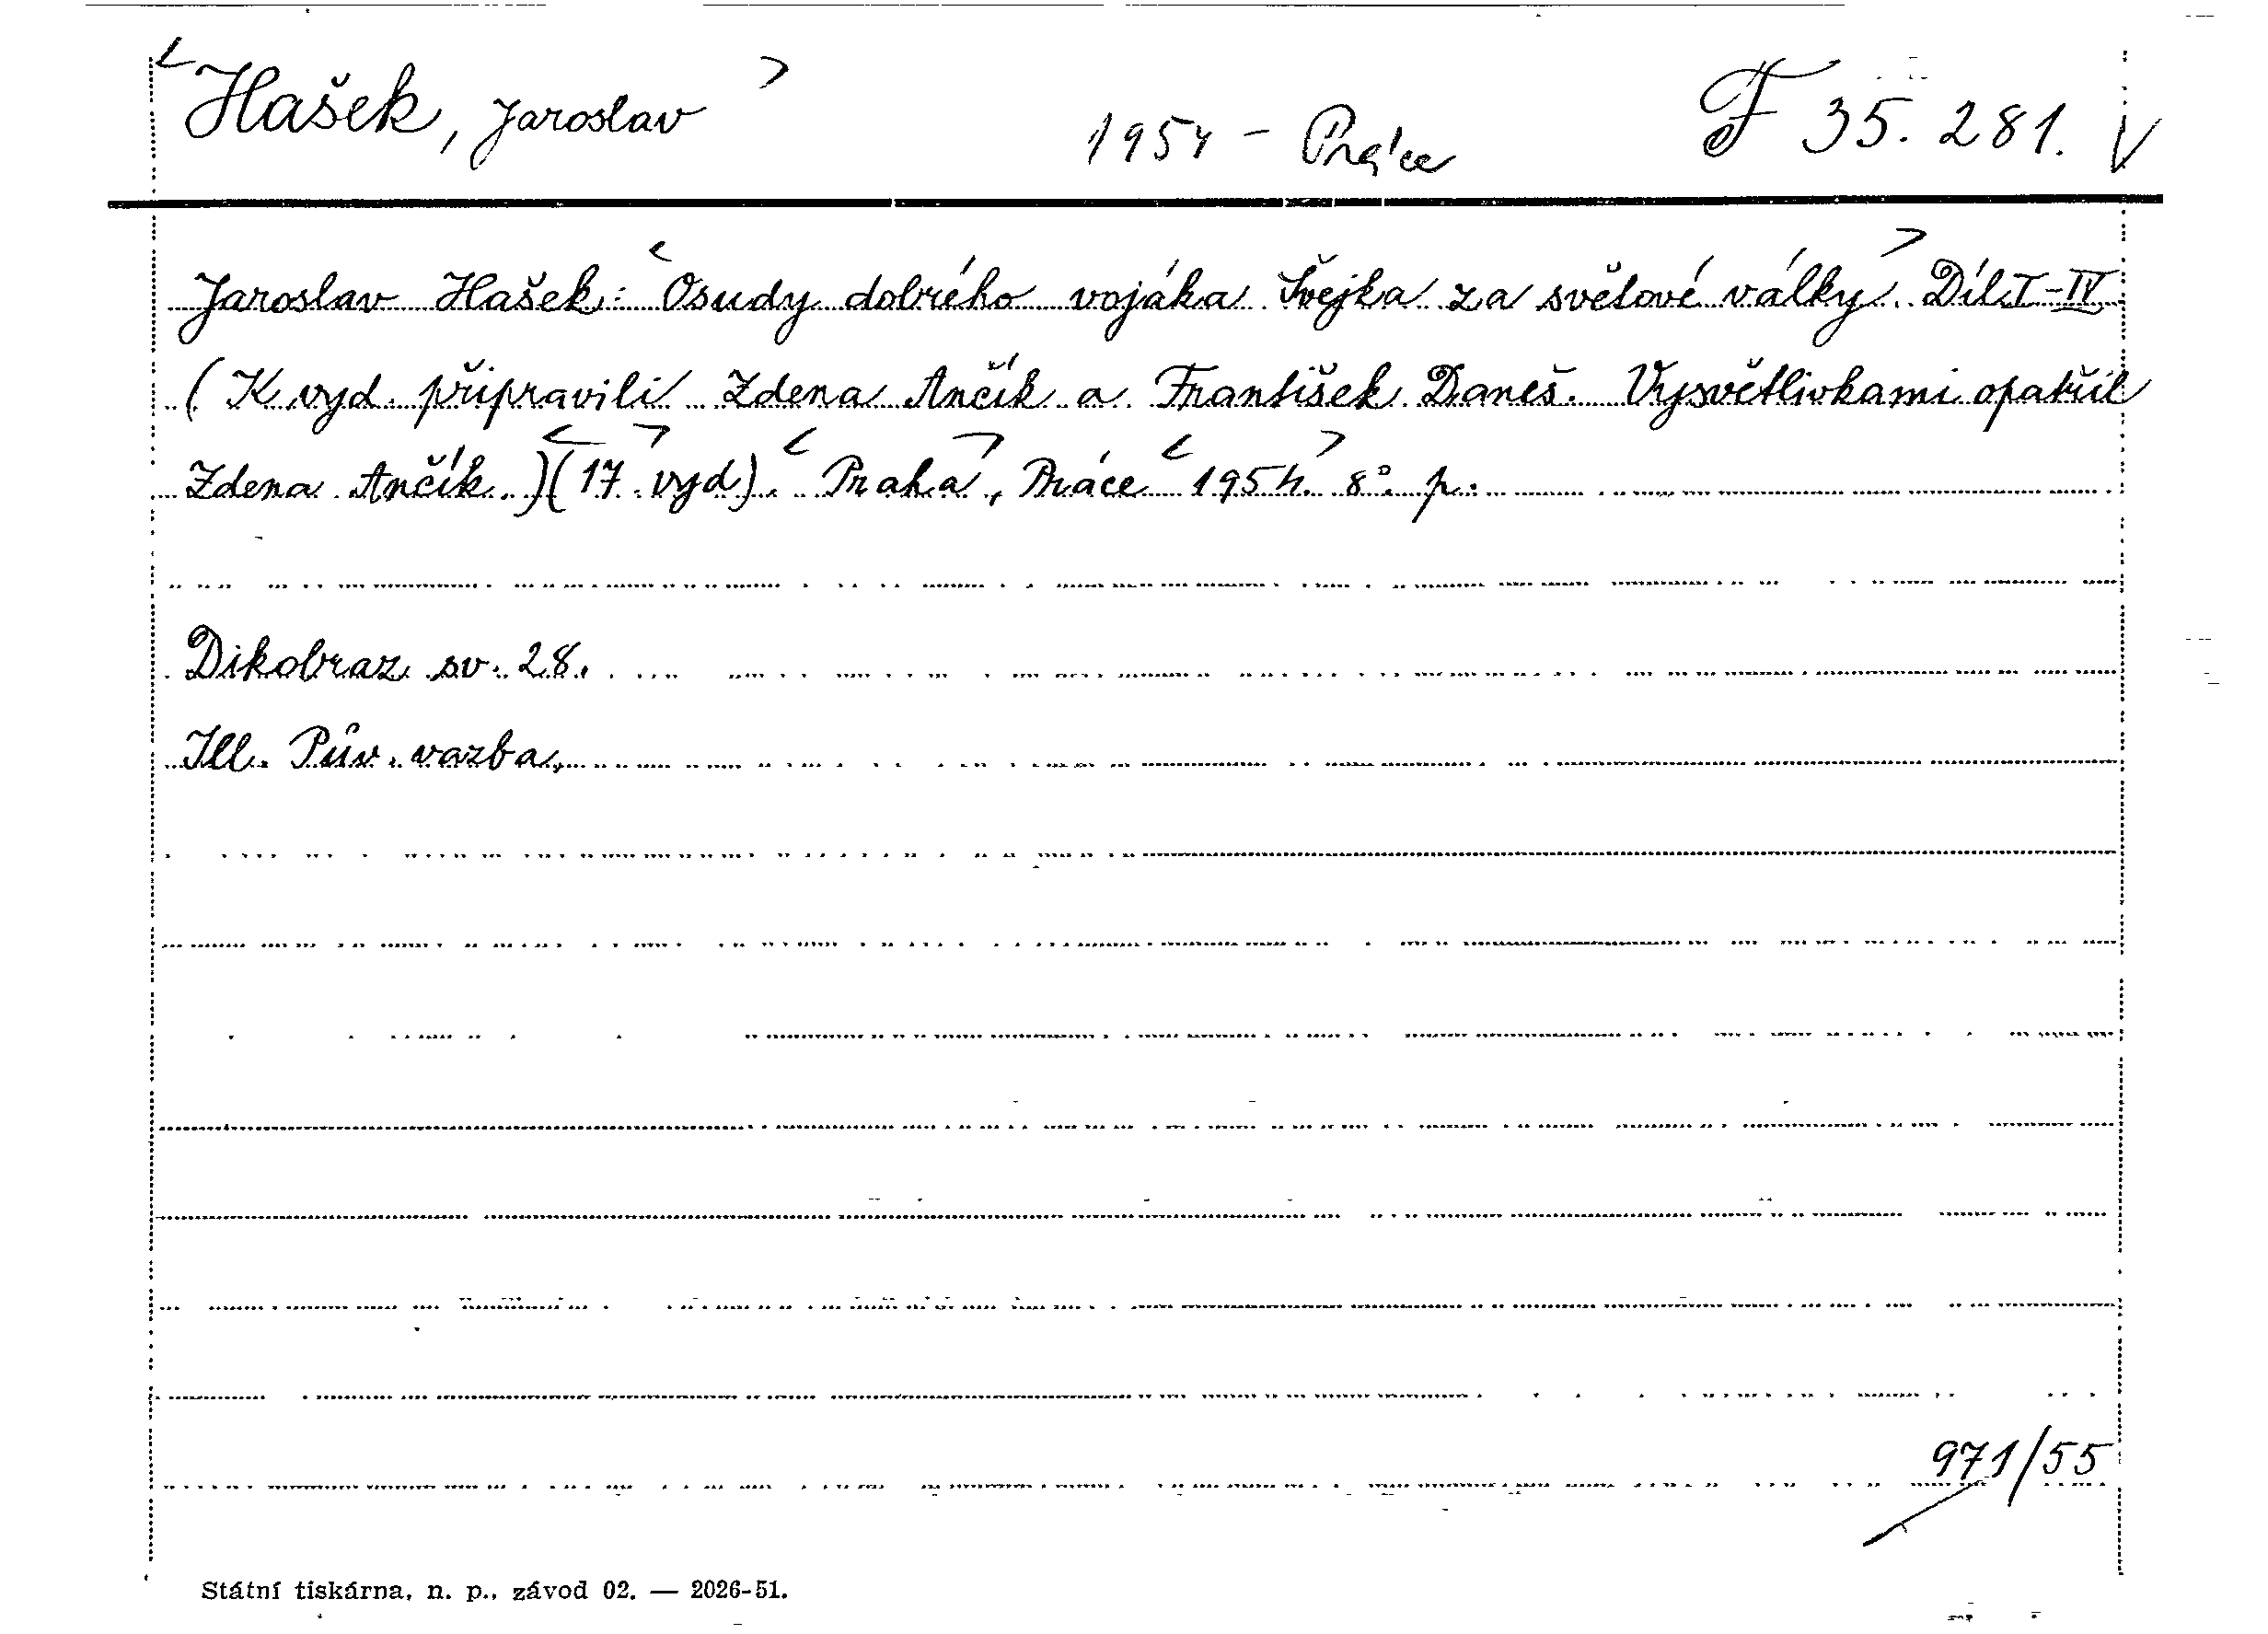 <Hašek, Jaroslav> 1954 - Práce F 35.281. V
Jaroslav Hašek: <Osudy dobrého vojáka Švejka za světové války>. Díl I-IV
(K vyd. připravili Zdena Ančík a František Daneš. Vysvětlivkami opatřil
Zdena Ančík.)<(17. vyd)>. <Praha>, Práce <1954.> 8°. p.
Dikobraz sv. 28.
Ill. Pův. vazba,
971/55
Státní tiskárna, n. p., závod 02. — 2026-51.